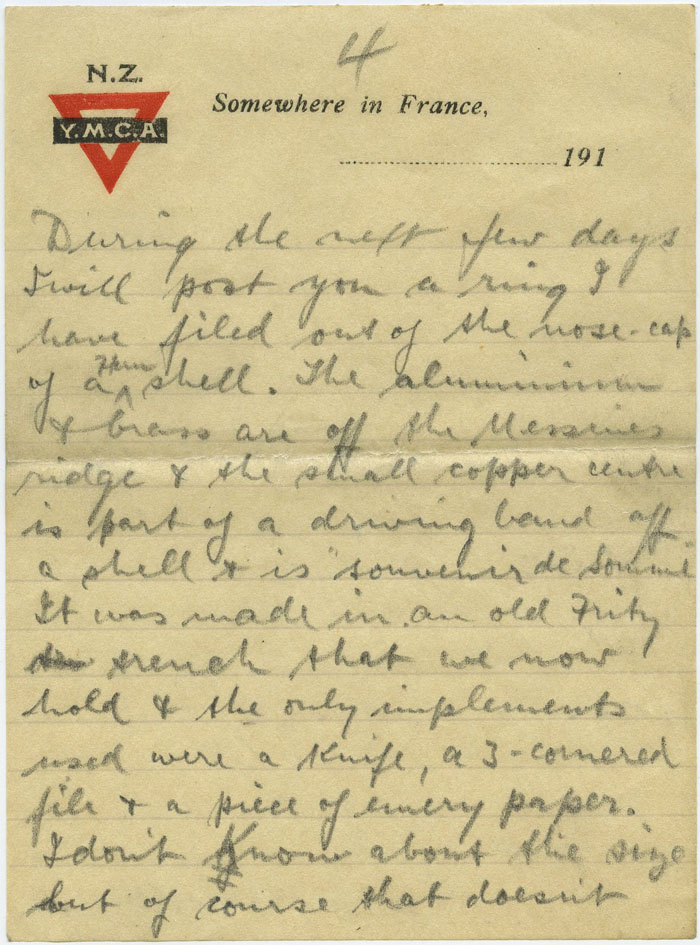 4
N.Z.
Y.M.C.A.
Somewhere in France,
191
During the next few days
I will post you a ring I
have filed out of the nose-cap
of a Hun shell. The aluminium
& brass are off the Messines
ridge & the small copper centre
is part of a driving band off
a shell & is "souvenir de
It was made in an old Fritz
trench that we now
hold & the only implements
used were a knife, a 3-cornered
file & a piece of emery paper.
I don't know about the size
but of course that doesn't